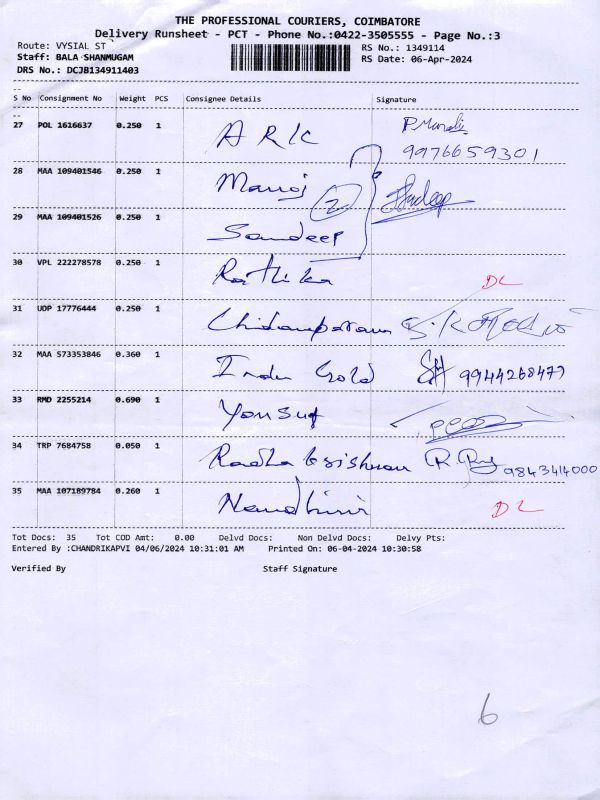 THE PROFESSIONAL COURIERS, COIMBATORE
Delivery Runsheet - PCT - Phone No.:0422-3505555 - Page No.:3
Route: VYSIAL ST
RS No.: 1349114
Staff: BALA SHANMUGAM
RS Date: 06-Apr-2024
DRS No.: DCJB134911403
S No Consignment No Weight PCS Consignee Details Signature
27 POL 1616637 0.250 1 ARK P.Murali
9976659301
28 MAA 109401546 0.250 1 Manoj 2 Sandeep
29 MAA 109401526 0.250 1 Sandeep
30 VPL 222278578 0.250 1 Rathika DL
31 UDP 17776444 0.250 1 Chidamparam
32 MAA 573353846 0.360 1 Indu Gold 9944268477
33 RMD 2255214 0.690 1 Yousuf
34 TRP 7684758 0.050 1 Radha krishnan 9843414000
35 MAA 107189784 0.260 1 DL
Tot Docs: 35 Tot COD Amt: 0.00 Delvd Docs: Non Delvd Docs: Delvy Pts:
Entered By :CHANDRIKAPVI 04/06/2024 10:31:01 AM Printed On: 06-04-2024 10:30:58
Verified By Staff Signature
6